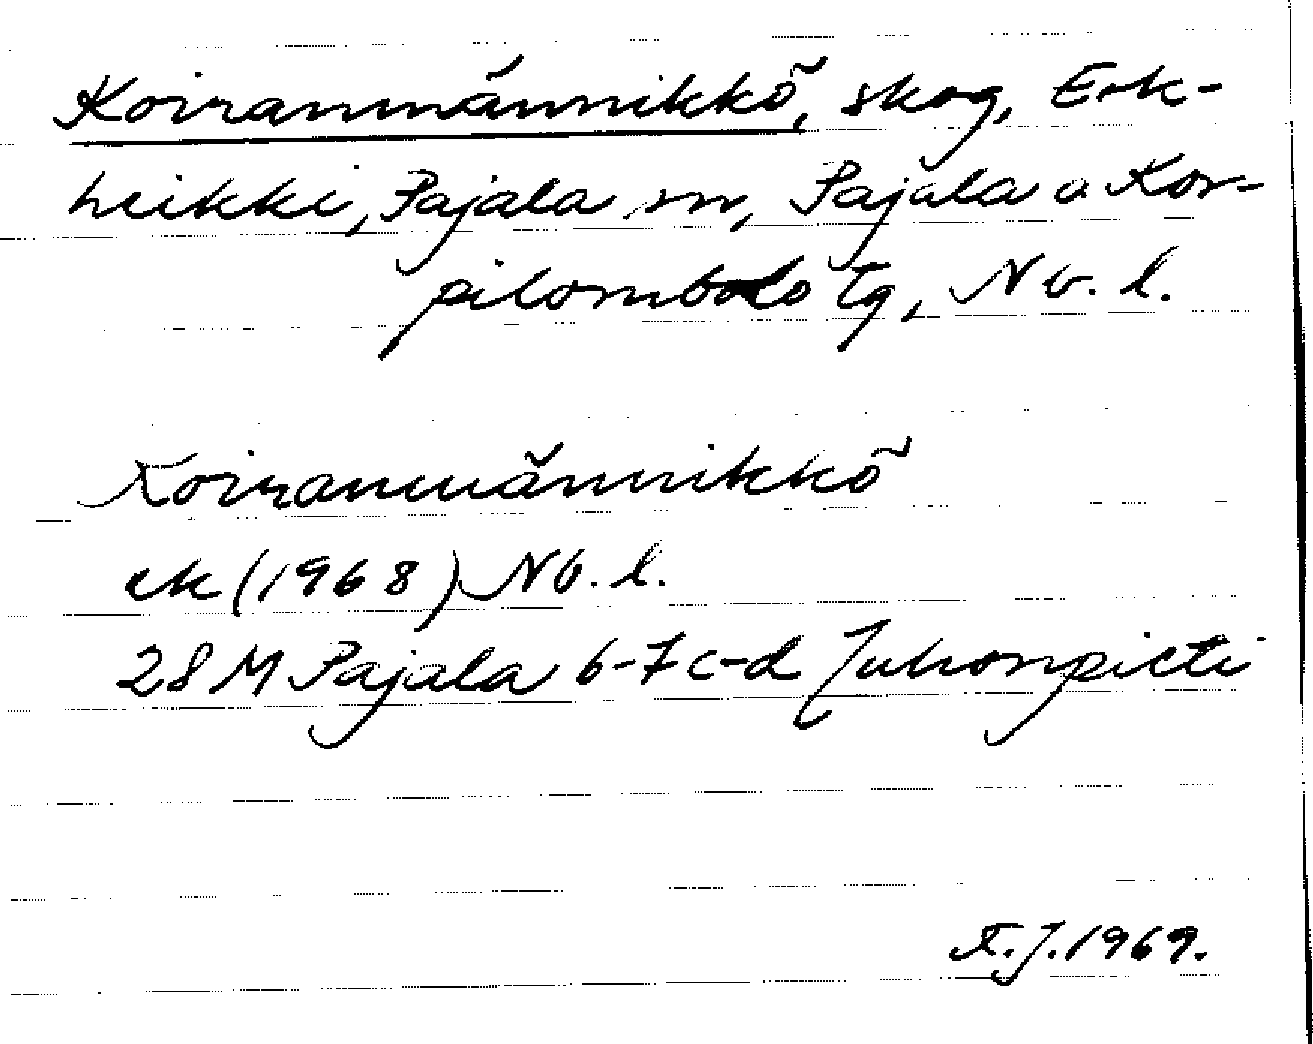 Koiranmännikkö, skog, Erk-
heikki, Pajala sn, Pajala o Kor-
pilombolo tg, Nb. l.
Koiranmännikkö
ek (1968) Nb. l.
28 M Pajala 6-7 c-d Juhonpieti
K.J. 1969.